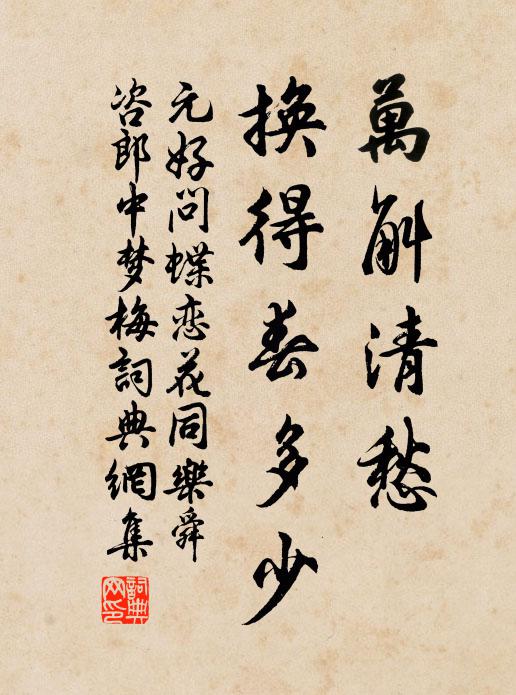 萬斛清愁
換得春多少
元好问蝶恋花同樂舜
咨郎中梦梅詞典網集
詞典网印